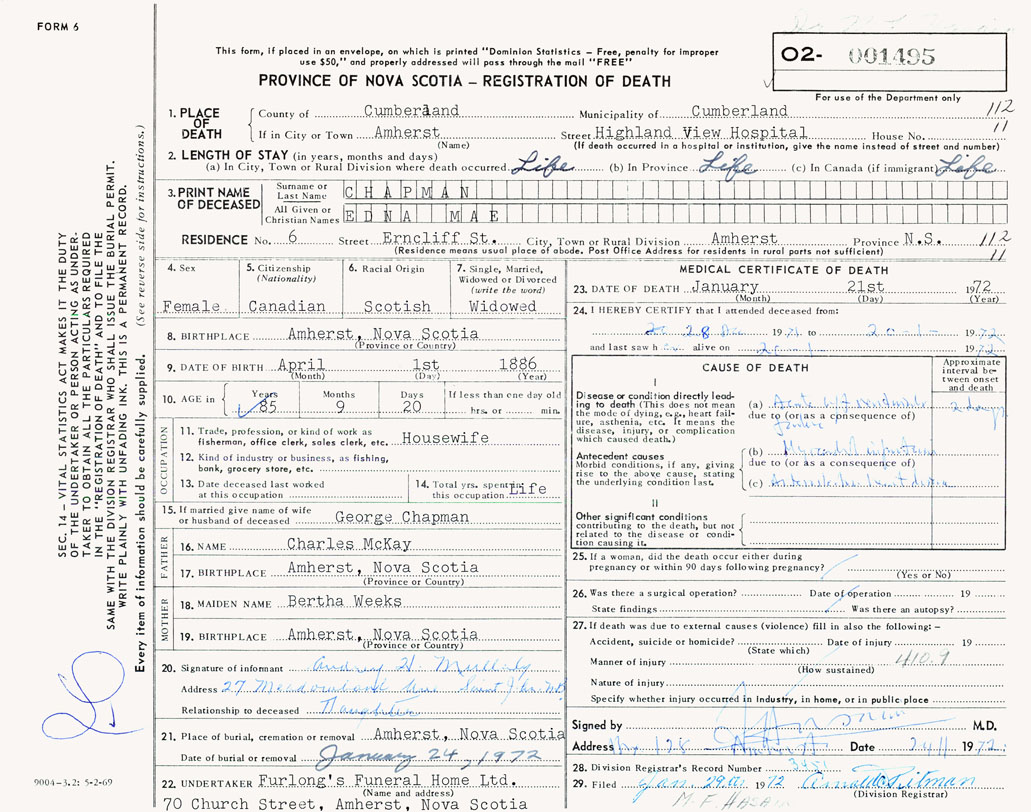 FORM 6
This form, if placed in an envelope, on which is printed "Dominion Statistics – Free, penalty for improper
use $50," and properly addressed will pass through the mail "FREE"
PROVINCE OF NOVA SCOTIA – REGISTRATION OF DEATH
02- 001495
For use of the Department only
1. PLACE OF DEATH
County of Cumberland Municipality of Cumberland 112
If in City or Town Amherst Street Highland View Hospital House No. 11
(Name) (If death occurred in a hospital or institution, give the name instead of street and number)
2. LENGTH OF STAY (in years, months and days)
(a) In City, Town or Rural Division where death occurred Life (b) In Province Life (c) In Canada (if immigrant) Life
3. PRINT NAME OF DECEASED
Surname or Last Name CHAPMAN
All Given or Christian Names EDNA MAE
RESIDENCE No. 6 Street Erncliff St. City, Town or Rural Division Amherst Province N.S. 112
(Residence means usual place of abode. Post Office Address for residents in rural parts not sufficient) 11
4. Sex
Female
5. Citizenship
(Nationality)
Canadian
6. Racial Origin
Scotish
7. Single, Married,
Widowed or Divorced
(write the word)
Widowed
8. BIRTHPLACE Amherst, Nova Scotia
(Province or Country)
9. DATE OF BIRTH April 1st 1886
(Month) (Day) (Year)
10. AGE in Years Months Days If less than one day old
85 9 20 hrs. or min.
OCCUPATION
11. Trade, profession, or kind of work as
fisherman, office clerk, sales clerk, etc. Housewife
12. Kind of industry or business, as fishing,
bank, grocery store, etc.
13. Date deceased last worked
at this occupation
14. Total yrs. spent in
this occupation Life
15. If married give name of wife
or husband of deceased George Chapman
FATHER
16. NAME Charles McKay
17. BIRTHPLACE Amherst, Nova Scotia
(Province or Country)
MOTHER
18. MAIDEN NAME Bertha Weeks
19. BIRTHPLACE Amherst, Nova Scotia
(Province or Country)
20. Signature of informant Audrey H.
Address 27
Relationship to deceased Daughter
21. Place of burial, cremation or removal Amherst, Nova Scotia
Date of burial or removal January 24, 1972
22. UNDERTAKER Furlong's Funeral Home Ltd.
(Name and address)
70 Church Street, Amherst, Nova Scotia
MEDICAL CERTIFICATE OF DEATH
23. DATE OF DEATH January 21st 1972
(Month) (Day) (Year)
24. I HEREBY CERTIFY that I attended deceased from:
28 Dec 1971 to 20-1- 1972
and last saw h alive on 20-1 1972
CAUSE OF DEATH
Approximate
interval be-
tween onset
and death
I
Disease or condition directly lead-
ing to death (This does not mean
the mode of dying, e.g., heart fail-
ure, asthenia, etc. It means the
disease, injury, or complication
which caused death.)
(a) Acute 2 days
due to (or as a consequence of)
failure
Antecedent causes
Morbid conditions, if any, giving
rise to the above cause, stating
the underlying condition last.
(b)
due to (or as a consequence of)
(c)
II
Other significant conditions
contributing to the death, but not
related to the disease or condi-
tion causing it.
25. If a woman, did the death occur either during
pregnancy or within 90 days following pregnancy?
(Yes or No)
26. Was there a surgical operation? Date of operation 19
State findings Was there an autopsy?
27. If death was due to external causes (violence) fill in also the following:–
Accident, suicide or homicide? Date of injury 19
(State which)
Manner of injury 410.9
(How sustained)
Nature of injury
Specify whether injury occurred in Industry, in home, or in public place
Signed by M.D.
Address Box 128 Amherst Date 24/1 1972
28. Division Registrar's Record Number 3451
29. Filed Jan. 29 1972 Pitman
(Division Registrar)
M. F.
SEC. 14 – VITAL STATISTICS ACT MAKES IT THE DUTY
OF THE UNDERTAKER OR PERSON ACTING AS UNDER-
TAKER TO OBTAIN ALL THE PARTICULARS REQUIRED
IN THE "REGISTRATION OF DEATH" AND TO FILE THE
SAME WITH THE DIVISION REGISTRAR WHO SHALL ISSUE THE BURIAL PERMIT.
WRITE PLAINLY WITH UNFADING INK. THIS IS A PERMANENT RECORD.
Every item of information should be carefully supplied. (See reverse side for instructions.)
9004-3.2: 5-2-69